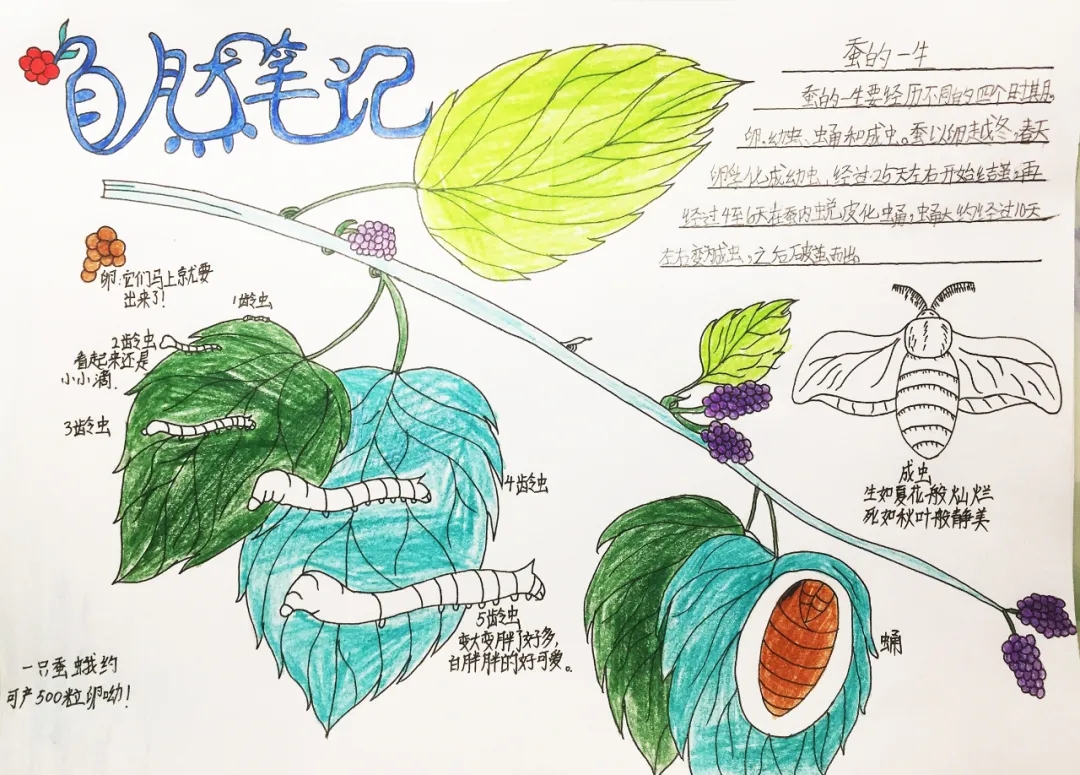 自然笔记
蚕的一生
蚕的一生要经历不同的四个时期。
卵、幼虫、蛹和成虫。蚕以卵越冬，春天
卵孵化成幼虫，经过25天左右开始结茧，再
经过4至6天在茧内蜕皮化蛹，蛹大约经过10天
左右变为成虫，之后破茧而出
卵：它们马上京就要
出来了！
1龄虫
2龄虫
看起来还是
小小滴.
3龄虫
4龄虫
5龄虫
变大变胖了好多，
白胖胖的好可爱。
成虫
生如夏花一般灿烂
死如秋叶般静美
蛹
一只蚕蛾约
可产500粒卵呦！